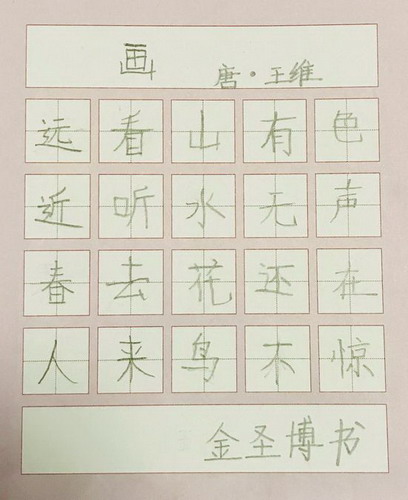 画
唐·王维
远看山有色
近听水无声
春去花还在
人来鸟不惊
金圣博书